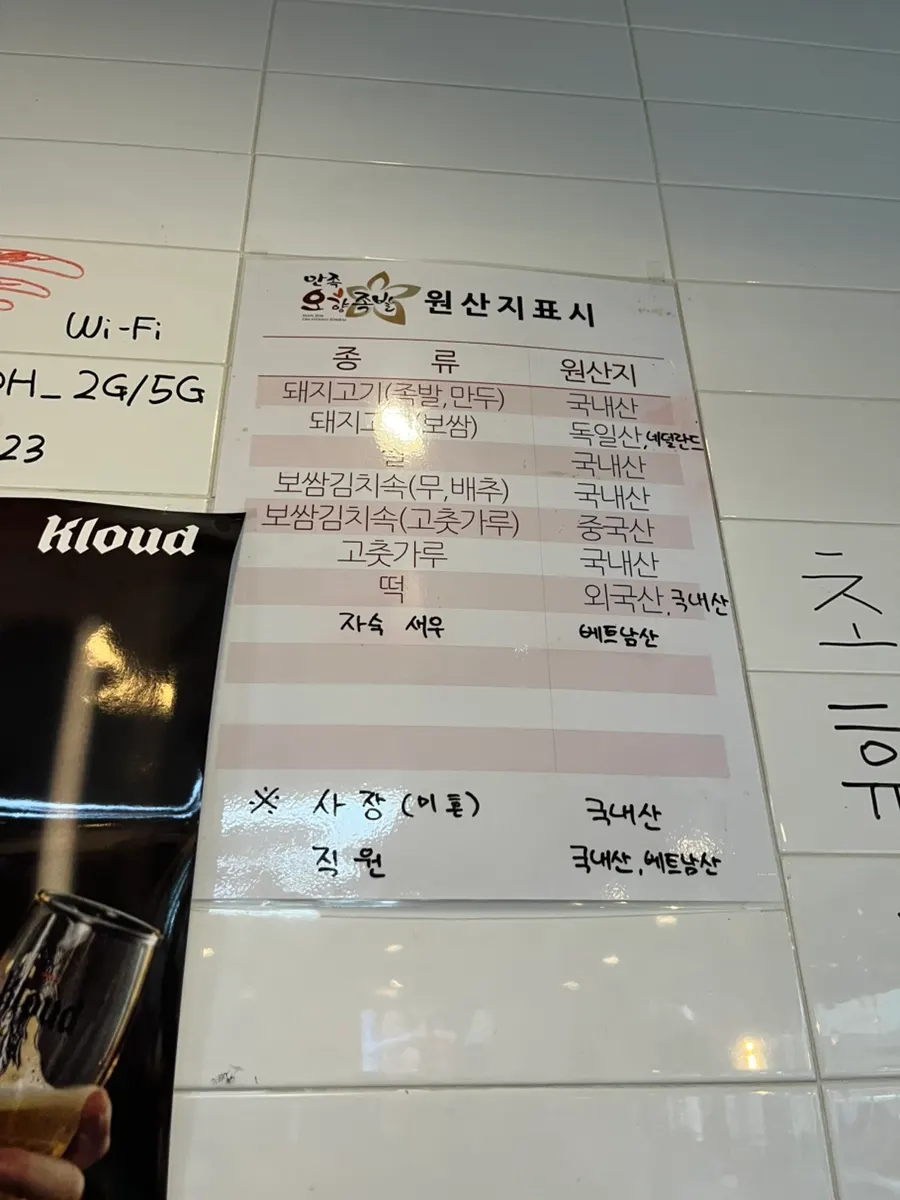 만족
오향족발 원산지표시
종 류 원산지
돼지고기(족발,만두) 국내산
돼지고 (보쌈) 독일산,네덜란드
쌀 국내산
보쌈김치속(무,배추) 국내산
보쌈김치속(고춧가루) 중국산
고춧가루 국내산
떡 외국산,국내산
자숙 새우 베트남산
※ 사장(미혼) 국내산
직원 국내산,베트남산
Wi-Fi
OH_2G/5G
23
Kloud
Kloud
초
휴